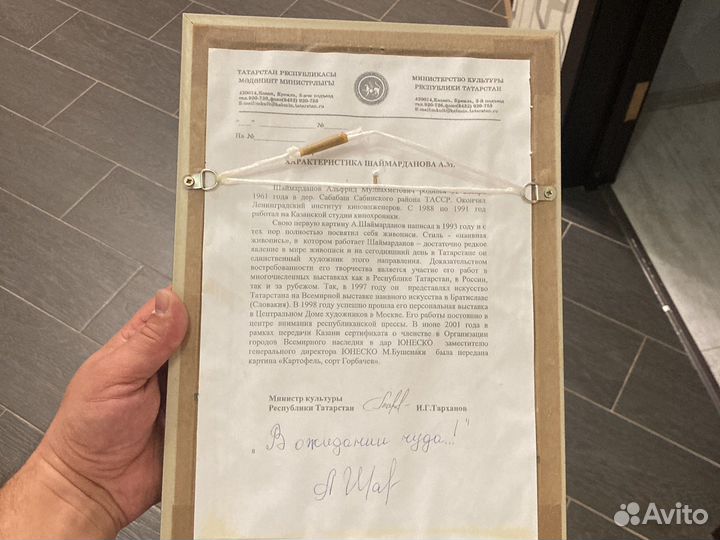 ТАТАРСТАН РЕСПУБЛИКАСЫ
МӘДӘНИЯТ МИНИСТРЛЫГЫ
420014, Казан, Кремль, 5-нче подъезд
МИНИСТЕРСТВО КУЛЬТУРЫ
РЕСПУБЛИКИ ТАТАРСТАН
420014, Казань, Кремль, 5-й подъезд
№
На №
ХАРАКТЕРИСТИКА ШАЙМАРДАНОВА А.М.
Шаймарданов Альфрид Мулвахметович родился
1961 года в дер. Сабабаш Сабинского района ТАССР. Окончил
Ленинградский институт киноинженеров. С 1988 по 1991 год
работал на Казанской студии кинохроники.
Свою первую картину А.Шаймарданов написал в 1993 году и с
тех пор полностью посвятил себя живописи. Стиль - «наивная
живопись», в котором работает Шаймарданов – достаточно редкое
явление в мире живописи и на сегодняшний день в Татарстане он
единственный художник этого направления. Доказательством
востребованности его творчества является участие его работ в
многочисленных выставках как в Республике Татарстан, в России,
так и за рубежом. Так, в 1997 году он представлял искусство
Татарстана на Всемирной выставке наивного искусства в Братиславе
(Словакия). В 1998 году успешно прошла его персональная выставка
в Центральном Доме художников в Москве. Его работы постоянно в
центре внимания республиканской прессы. В июне 2001 года в
рамках передачи Казани сертификата о членстве в Организации
городов Всемирного наследия в дар ЮНЕСКО заместителю
генерального директора ЮНЕСКО М.Бушенаки была передана
картина «Картофель, сорт Горбачев».
Министр культуры
Республики Татарстан И.Г.Тарханов
"В ожидании чуда...!"
А Шай
Avito